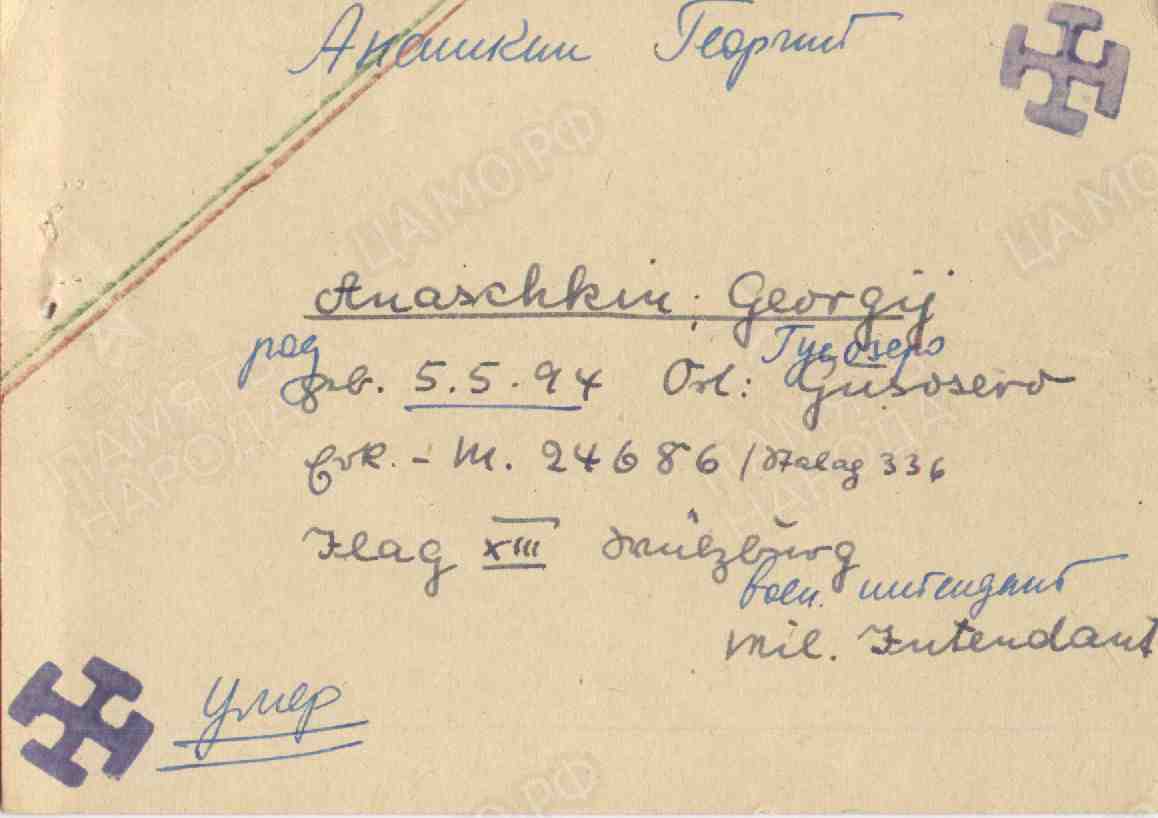 Анашкин Георгий
Anaschkin, Georgij
род Гусозеро
geb. 5.5.94 Ort: Gusosero
Erk. - M. 24686 / Stalag 336
Ilag XIII Wülzburg
воен. интендант
mil. Intendant
умер
ЦАМО РФ
ЦАМО РФ
ПАМЯТЬ НАРОДА
ЦАМО РФ